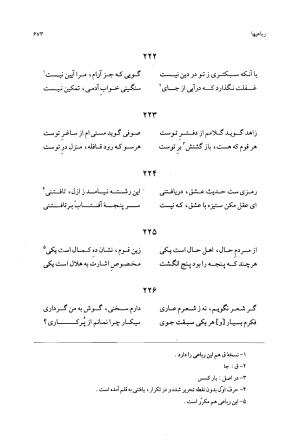 رباعیها ۶۷۳
۲۲۲
با آنکه سبکتری ز تو در دین نیست گویی که جز آرام، مرا آیین نیست
غفلت نگذارد که برآیی از جای سنگینی خواب آدمی، تمکین نیست
۲۲۳
زاهد گوید کلامم از دفتر توست صوفی گوید مستی ام از ساغر توست
هر قوم که هست، باز گشتش بر توست هرسو که رود قافله، منزل در توست
۲۲۴
رمزی ست حدیث عشق، دریافتنی این رشته نیامد ز ازل، تافتنی
ای عقل مکن ستیزه با عشق، که نیست سر پنجهٔ آفتاب برتافتنی
۲۲۵
از مردم حال، اهل حال است یکی زین قوم، نشان ده کمال است یکی
هرچند که پنجه را بود پنج انگشت مخصوص اشارت به هلال است یکی
۲۲۶
گر شعر نگویم، نه ز شعرم عاری دارم سخنی، گوش به من گرداری
فکرم بسیار [و] هر یکی سبقت جوی بیکار چرا نمانم از پُرکاری؟
۱- نسخهٔ ق هم این رباعی را دارد.
۲- ق: جا
۳- در اصل: بار کسس
۴- حرف اول بدون نقطه تحریر شده و در تکرار، یافتنی به قلم آمده است.
۵- این رباعی هم مکرّر است.